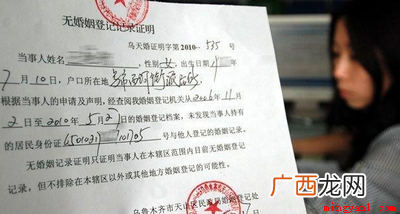 无婚姻登记记录证明
乌天婚证明字第2010-535号
当事人姓名 性别女,出生日期
7月10日,户口所在地
根据当事人的申请及声明,经查阅我婚姻登记机关从2006年11月
2日至2010年5月2日的婚姻登记档案,未发现当事人持有
的居民身份证(650102 01705)号与他人登记的婚姻记录。
无婚姻记录证明只证明当事人在本辖区范围内目前无婚姻登记
记录。但不排除在本辖区以外或其他地方婚姻登记的可能性。
乌鲁木齐市天山区民政局婚姻登记处
广西龙网